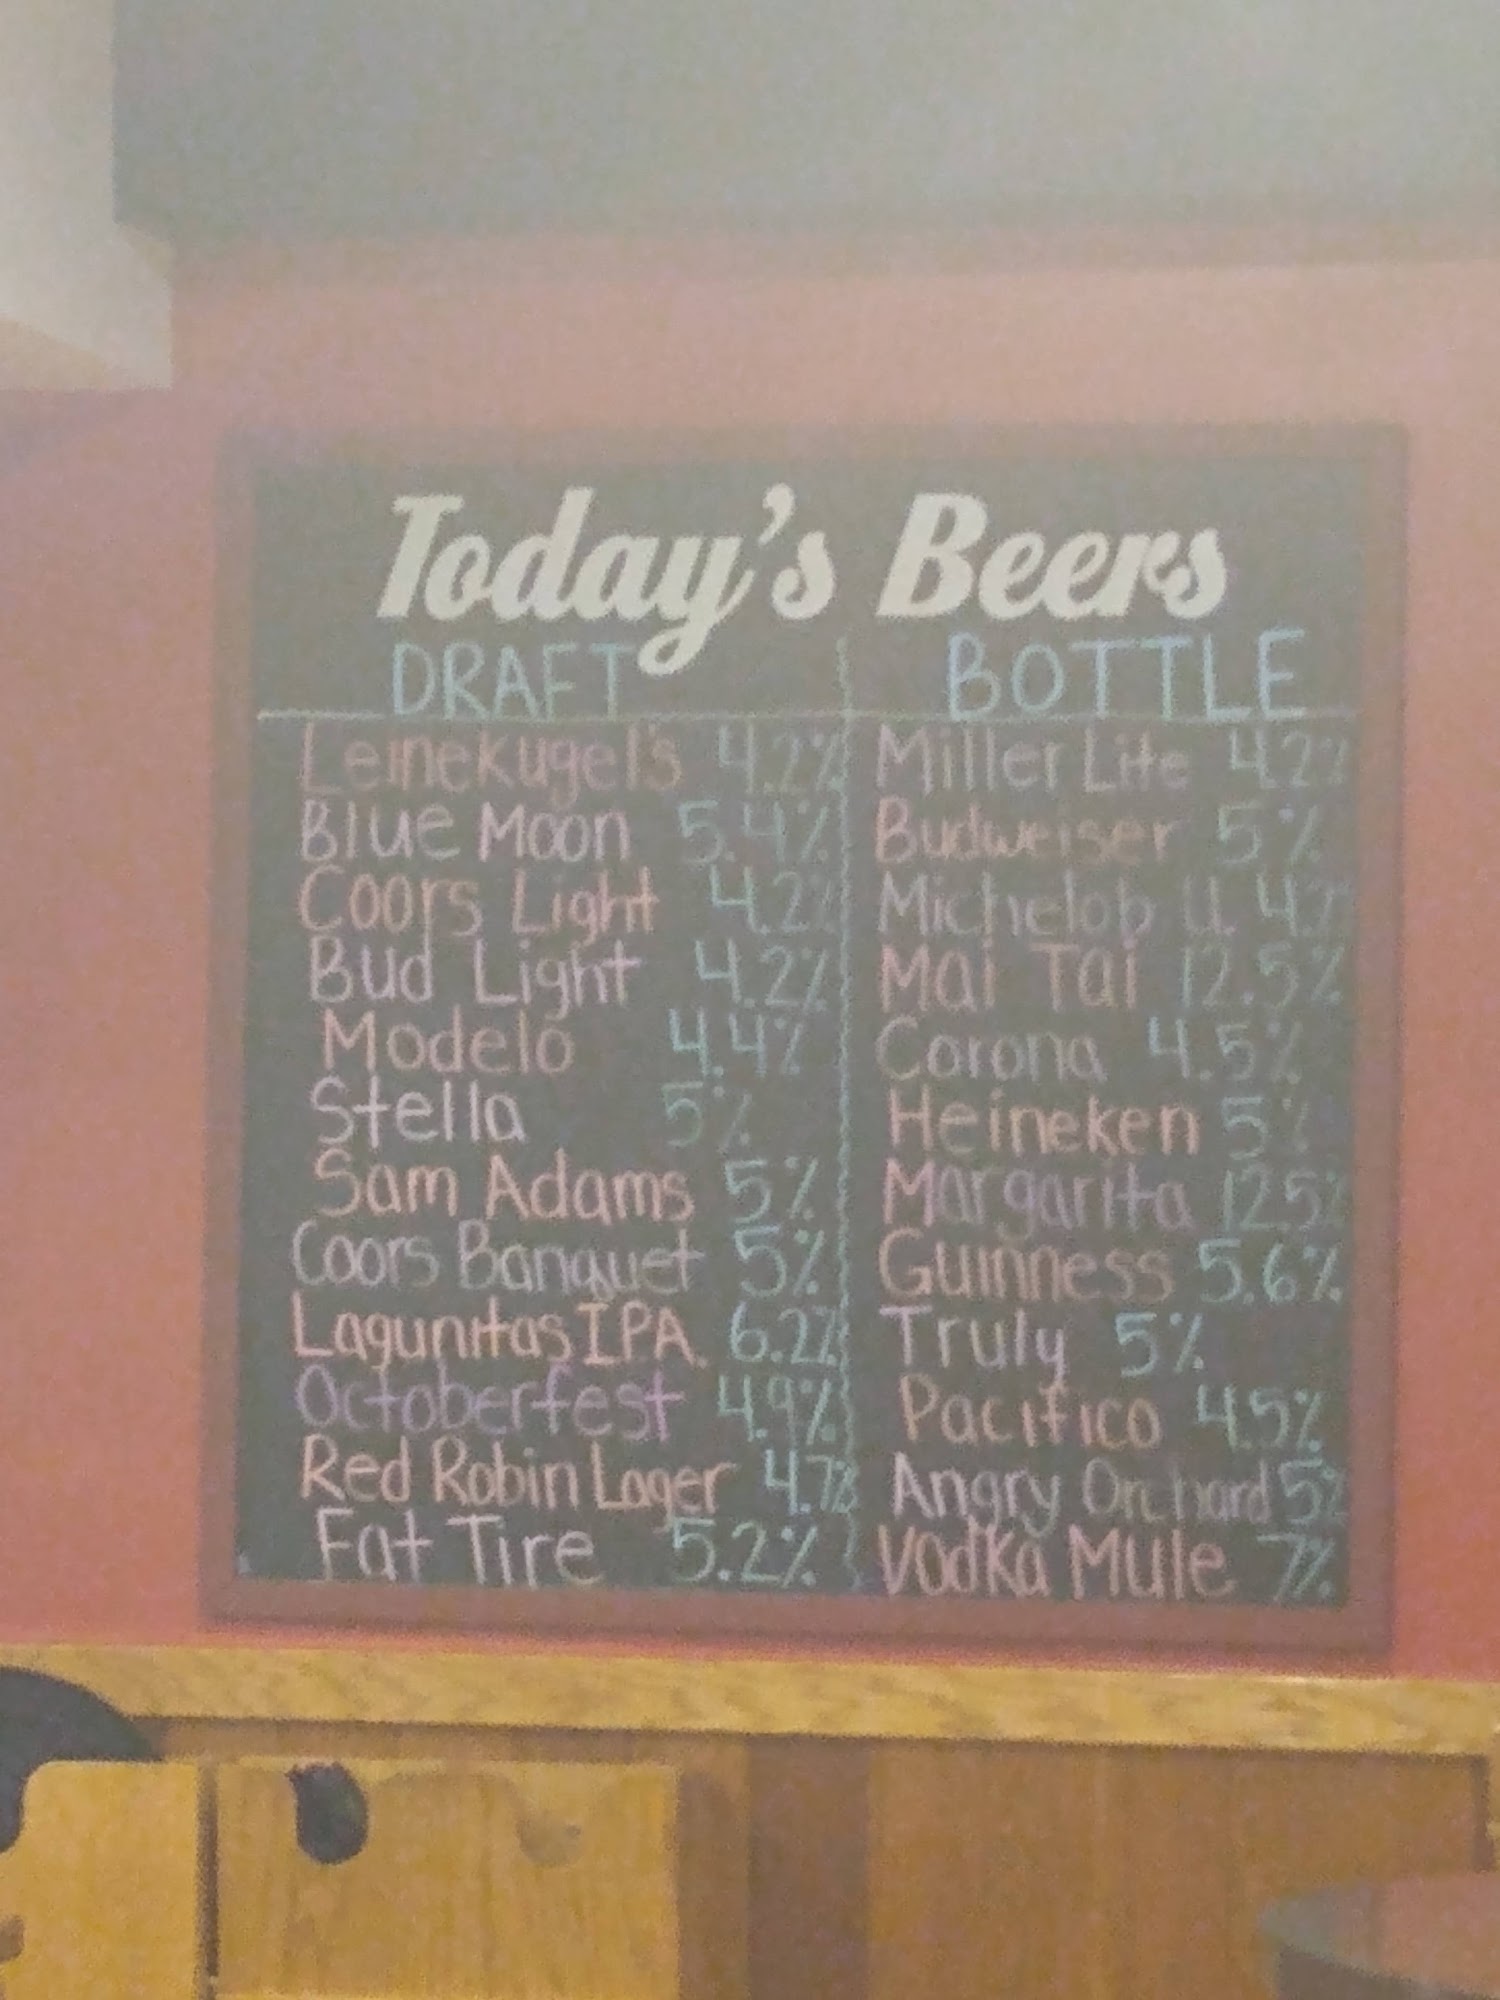 Today's Beers
DRAFT
Leinekugel's 4.2%
Blue Moon 5.4%
Coors Light 4.2%
Bud Light 4.2%
Modelo 4.4%
Stella 5%
Sam Adams 5%
Coors Banquet 5%
Lagunitas IPA 6.2%
Octoberfest 4.9%
Red Robin Lager 4.7%
Fat Tire 5.2%
BOTTLE
Miller Lite 4.2%
Budweiser 5%
Michelob U 4.%
Mai Tai 12.5%
Corona 4.5%
Heineken 5%
Margarita 12.5%
Guinness 5.6%
Truly 5%
Pacifico 4.5%
Angry Orchard 5%
Vodka Mule 7%